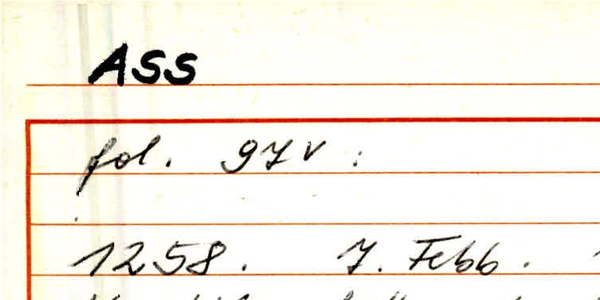 ASS
fol. 97v:
1258. 7. Febb.